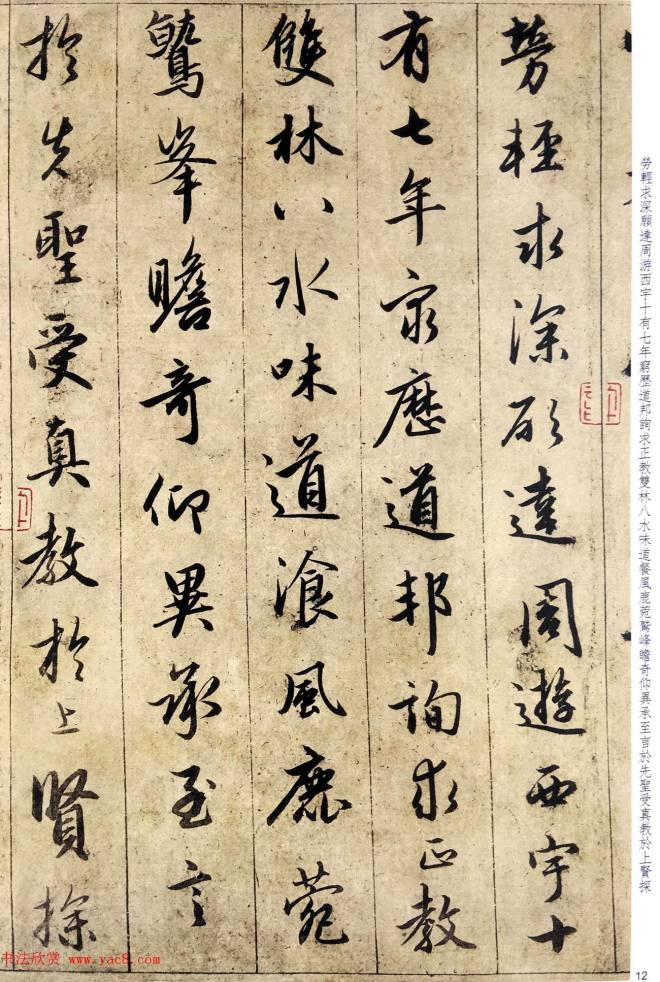 勞輕求深願達周遊西宇十
有七年窮歷道邦詢求正教
雙林八水味道飡風鹿菀
鷲峯瞻奇仰異承至言
於先聖受真教於上賢探
勞輕求深願達周游西宇十有七年窮歷道邦詢求正教雙林八水味道餐風鹿菀鷲峰瞻奇仰異承至言於先聖受真教於上賢探
12
书法欣赏 www.yac8.com